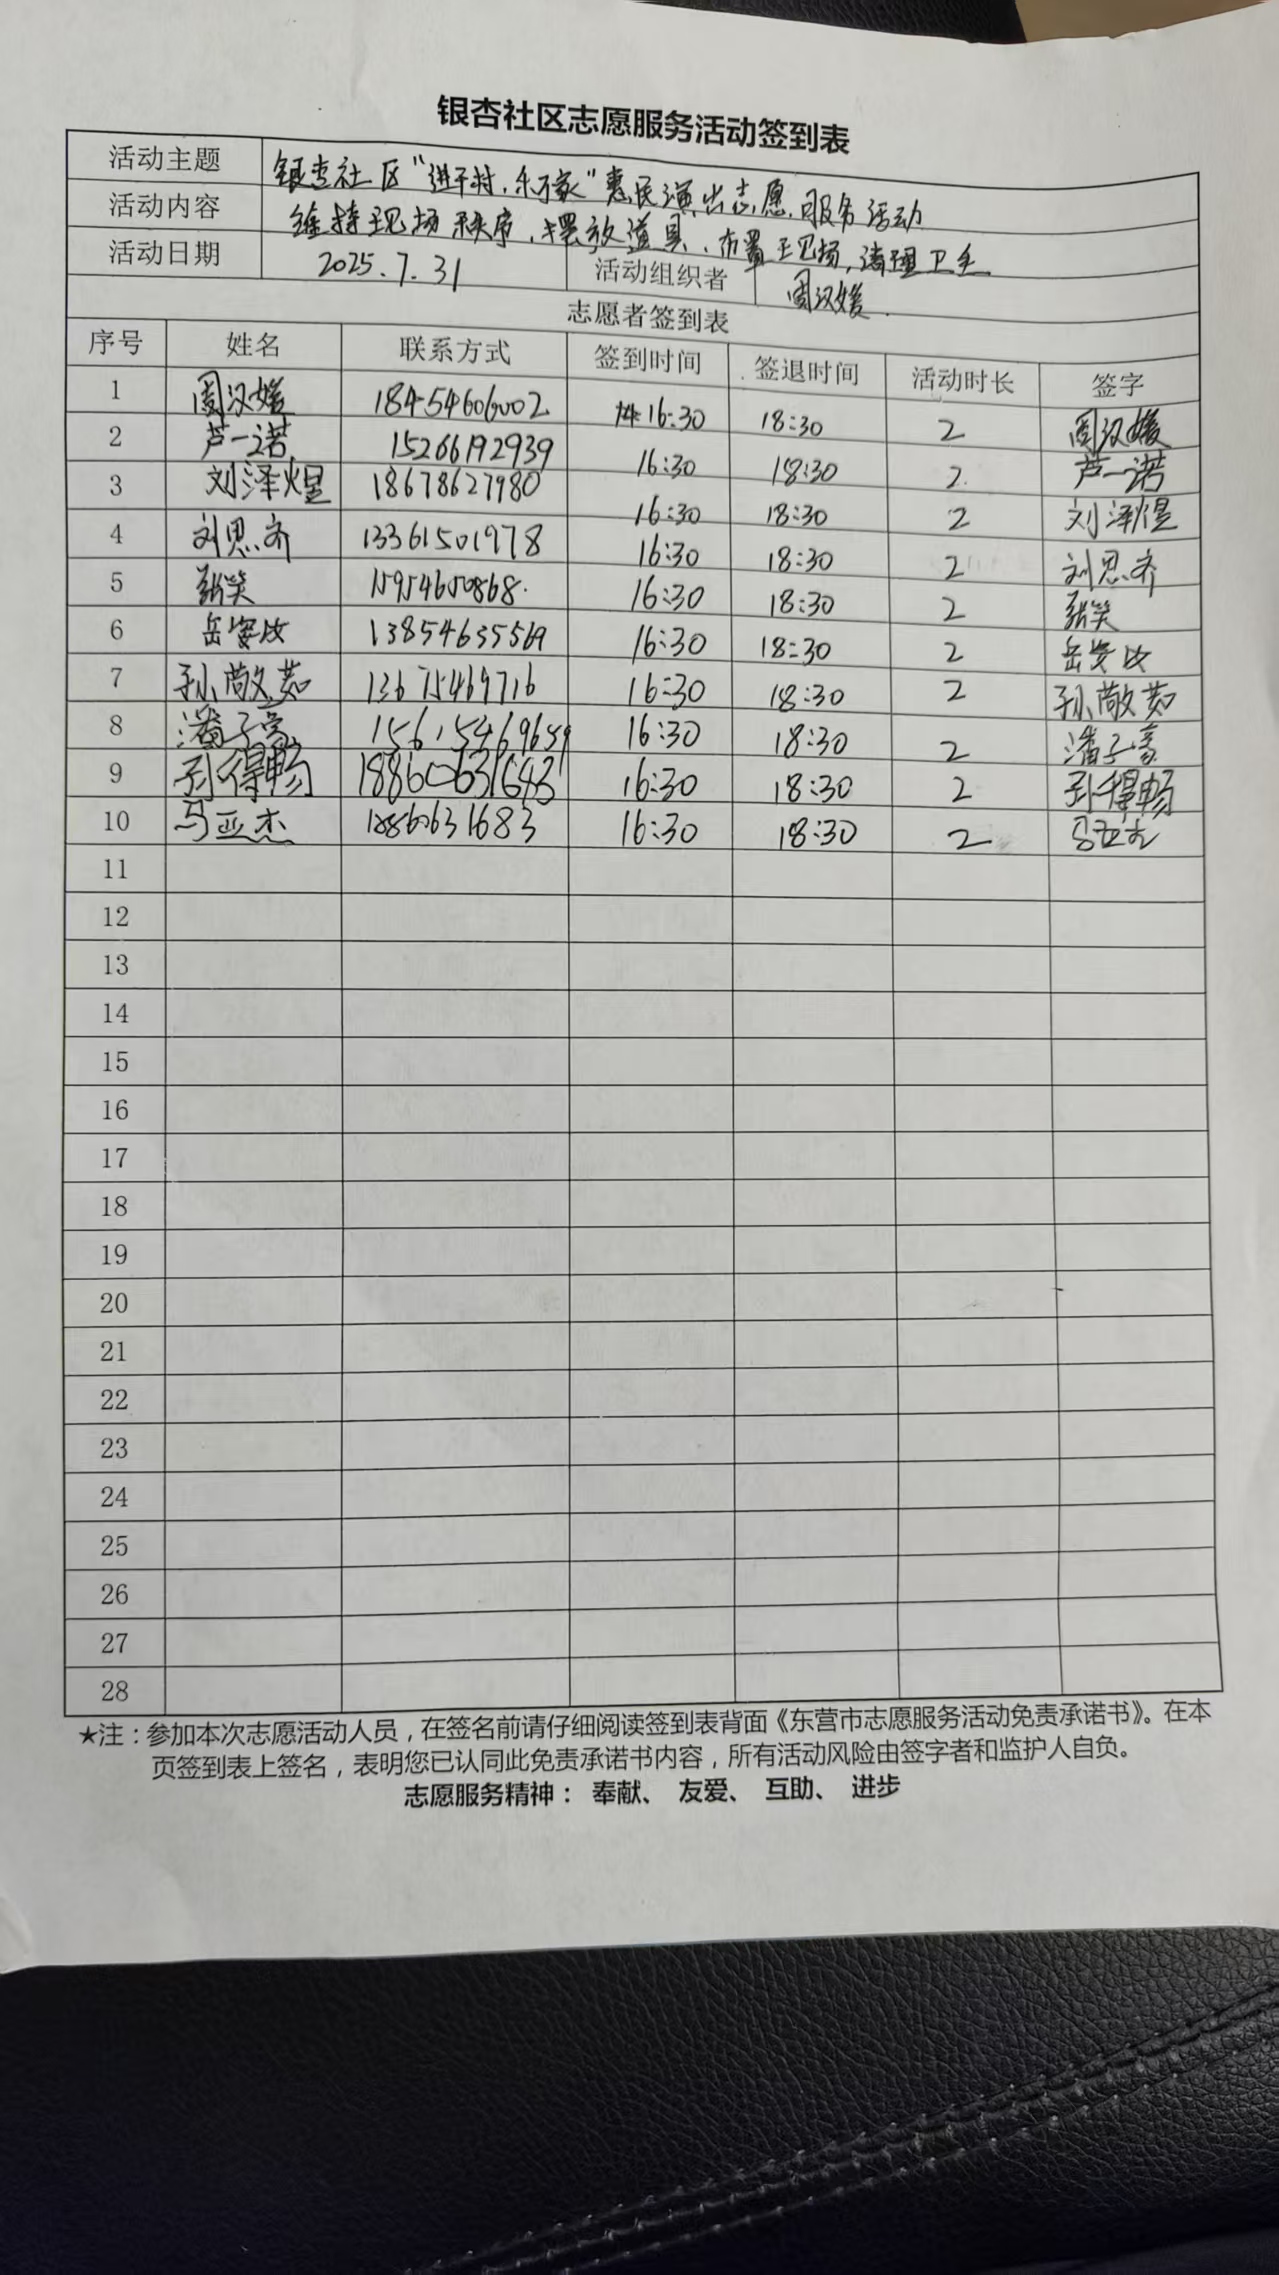 银杏社区志愿服务活动签到表
活动主题 银杏社区“进千村,乐万家”惠民演出志愿服务活动
活动内容 维持现场秩序,摆放道具、布置现场,清理卫生
活动日期 2025.7.31 活动组织者 周汉媛
志愿者签到表
序号 姓名 联系方式 签到时间 签退时间 活动时长 签字
1 周汉媛 18454606002 16:30 18:30 2 周汉媛
2 芦一诺 15266192939 16:30 18:30 2 芦一诺
3 刘泽煜 18678627980 16:30 18:30 2 刘泽煜
4 刘思齐 13361501978 16:30 18:30 2 刘思齐
5 张笑 15954650868 16:30 18:30 2 张笑
6 岳安汝 13854635569 16:30 18:30 2 岳安汝
7 孙敬茹 13675469716 16:30 18:30 2 孙敬茹
8 潘子 15615469659 16:30 18:30 2 潘子
9 孙得畅 16:30 18:30 2 孙得畅
10 马亚杰 18860631683 16:30 18:30 2 马亚杰
11
12
13
14
15
16
17
18
19
20
21
22
23
24
25
26
27
28
★注：参加本次志愿活动人员，在签名前请仔细阅读签到表背面《东营市志愿服务活动免责承诺书》。在本
页签到表上签名，表明您已认同此免责承诺书内容，所有活动风险由签字者和监护人自负。
志愿服务精神： 奉献、 友爱、 互助、 进步